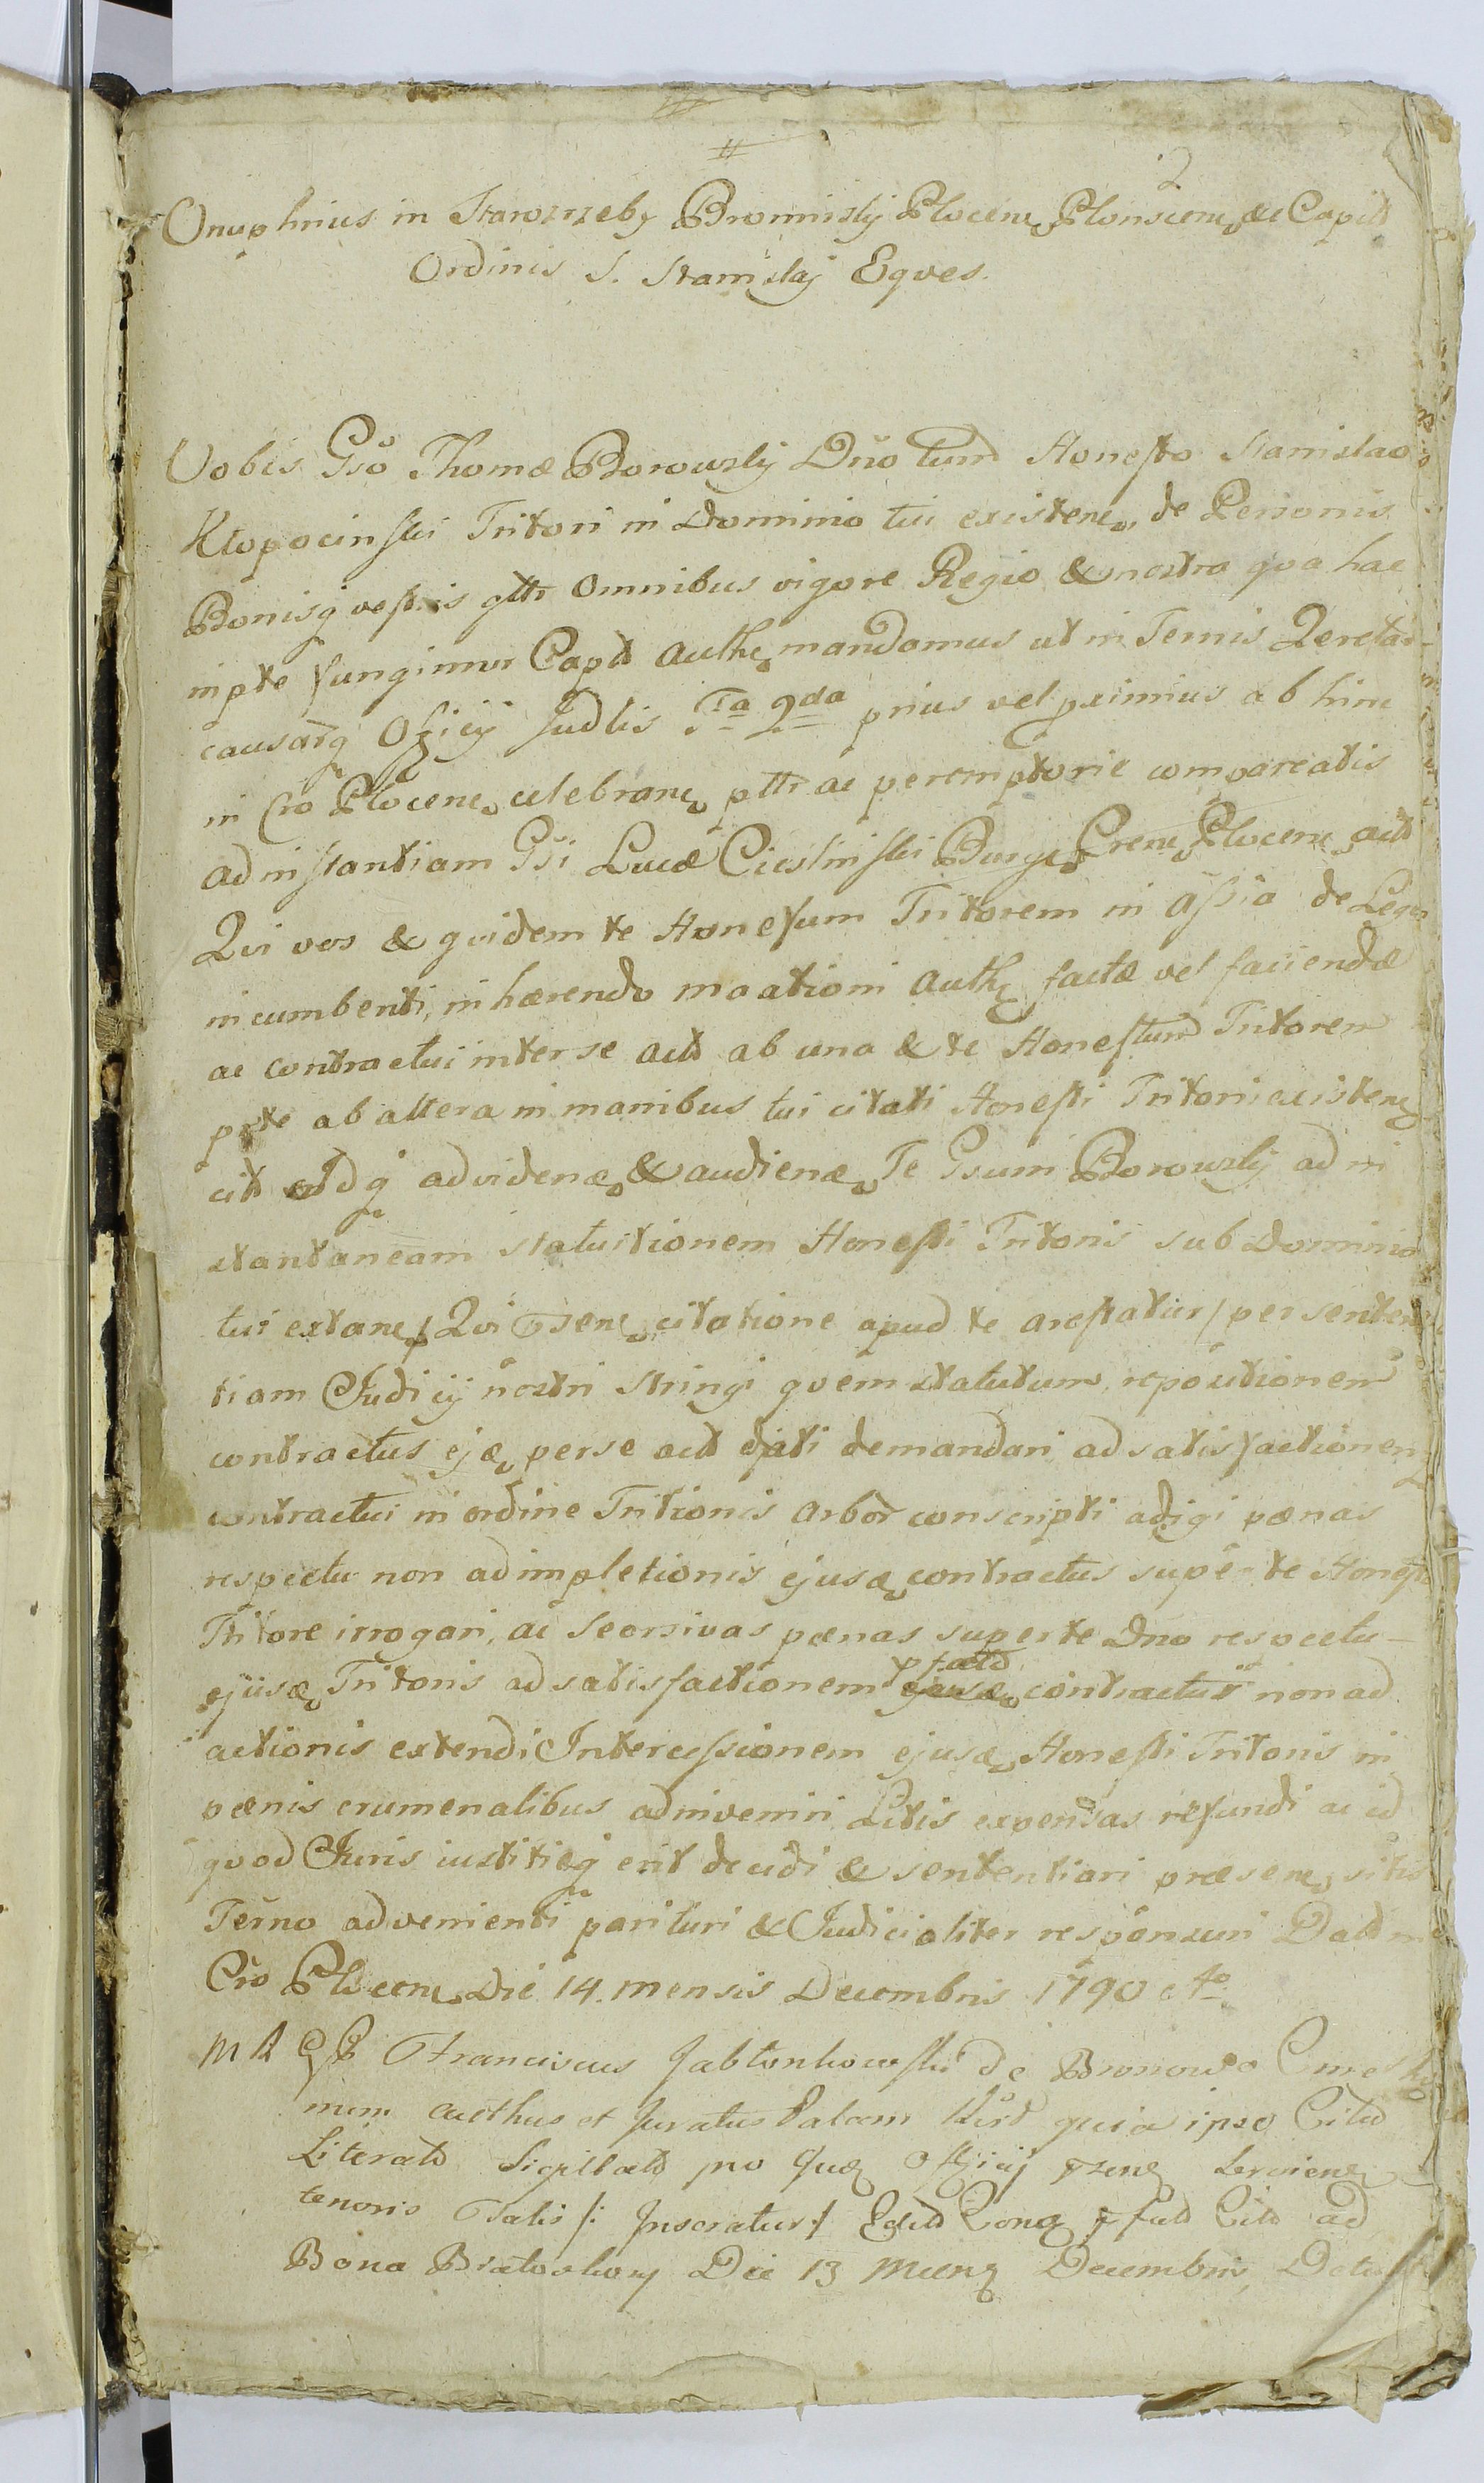 2
Onuphrius in Starozrzeby Bromirskÿ Plocen Plonscen &c Capit
Ordinis S. Stanislaj Eqves.
Vobis Gso Thomæ Borowskÿ Dno tum Honesto Stanislao
Kłopocinski Tritori in Dominio tui existen, de Personis
Bonisq vestris gttr Omnibus vigore Regio & nostra qva hac
in pte fungimur Capit Authe mandamus ut in Ternis Qerelar
causarq Officÿ Judlis Fa 2da prius vel pximius ab hinc
in Cro Plocen celebran pttr ac peremptorie compareatis
ad instantiam Gsi Lucæ Cieslinski Burg Cren Plocen act
Qvi vos & qvidem te Honestum Tritorem in assia de Lege
incumbenti, inhærendo moationi Auth factæ vel faciendæ
ac contractui inter se act ab una & te Honestum Tritorem
pte ab altera in manibus tui citati Honesti Tritoris existen
cit advidenæ & audienæ Te Gsum Borowskÿ ad in
stantaneam statuitionem Honesti Tritoris sub Dominio
tui extane / Qvi psen citatione apud te arestatur / per senten
tiam Judicÿ nostri stringi qvem statutum repositionem
contractus ejæ per se act dati demandari ad satisfactionem
contractui in ordine Tritionis arbor conscripti adigi pænas
respectu non adimpletionis ejusæ contractus super te Honesto
Tritore irrogari, ac seorsivas pænas super te Dno respectu
ejusæ Tritoris ad satisfactionem pfatd contractui non ad
actionis extendi Intercessionem ejusæ Honesti Tritoris in
pænis crumenalibus adinveniri Litis expensas refundi ac id
qvod Juris iustitieq erit decidi & sententiari præsen sitis
Terno advenienti parituri & Judicialiter responsuri Datt in
Cro Plocen Die 14. mensis Decembris 1790 Ao
Franciscus Jabłonkowski de Bronowo
nim authus et Juratus Palam quia ipse Citd
Literatd Sigillatd pro Officÿ pzen servien
tenoris Talis /: Inseratur :/ Citd ad
Bona Die 13 Decembris